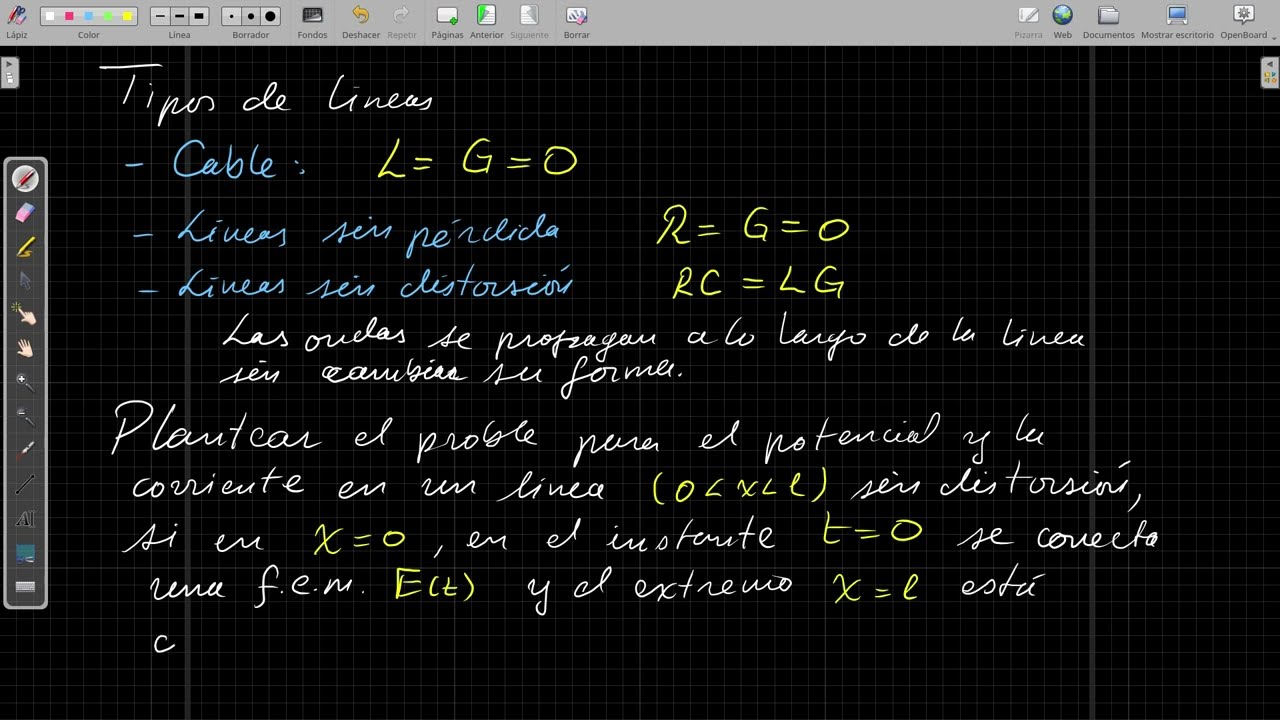 Lápiz Color Línea Borrador Fondos Deshacer Repetir Páginas Anterior Siguiente Borrar Pizarra Web Documentos Mostrar escritorio OpenBoard
Tipos de lineas
- Cable: L = G = 0
- Lineas sin pérdida R = G = 0
- Lineas sin distorsión RC = LG
Las ondas se propagan a lo largo de la linea
sin cambiar su forma.
Plantear el proble para el potencial y la
corriente en un linea (0 < x < l) sin distorsión,
si en x = 0, en el instante t = 0 se conecta
una f.e.m. E(t) y el extremo x = l está
c